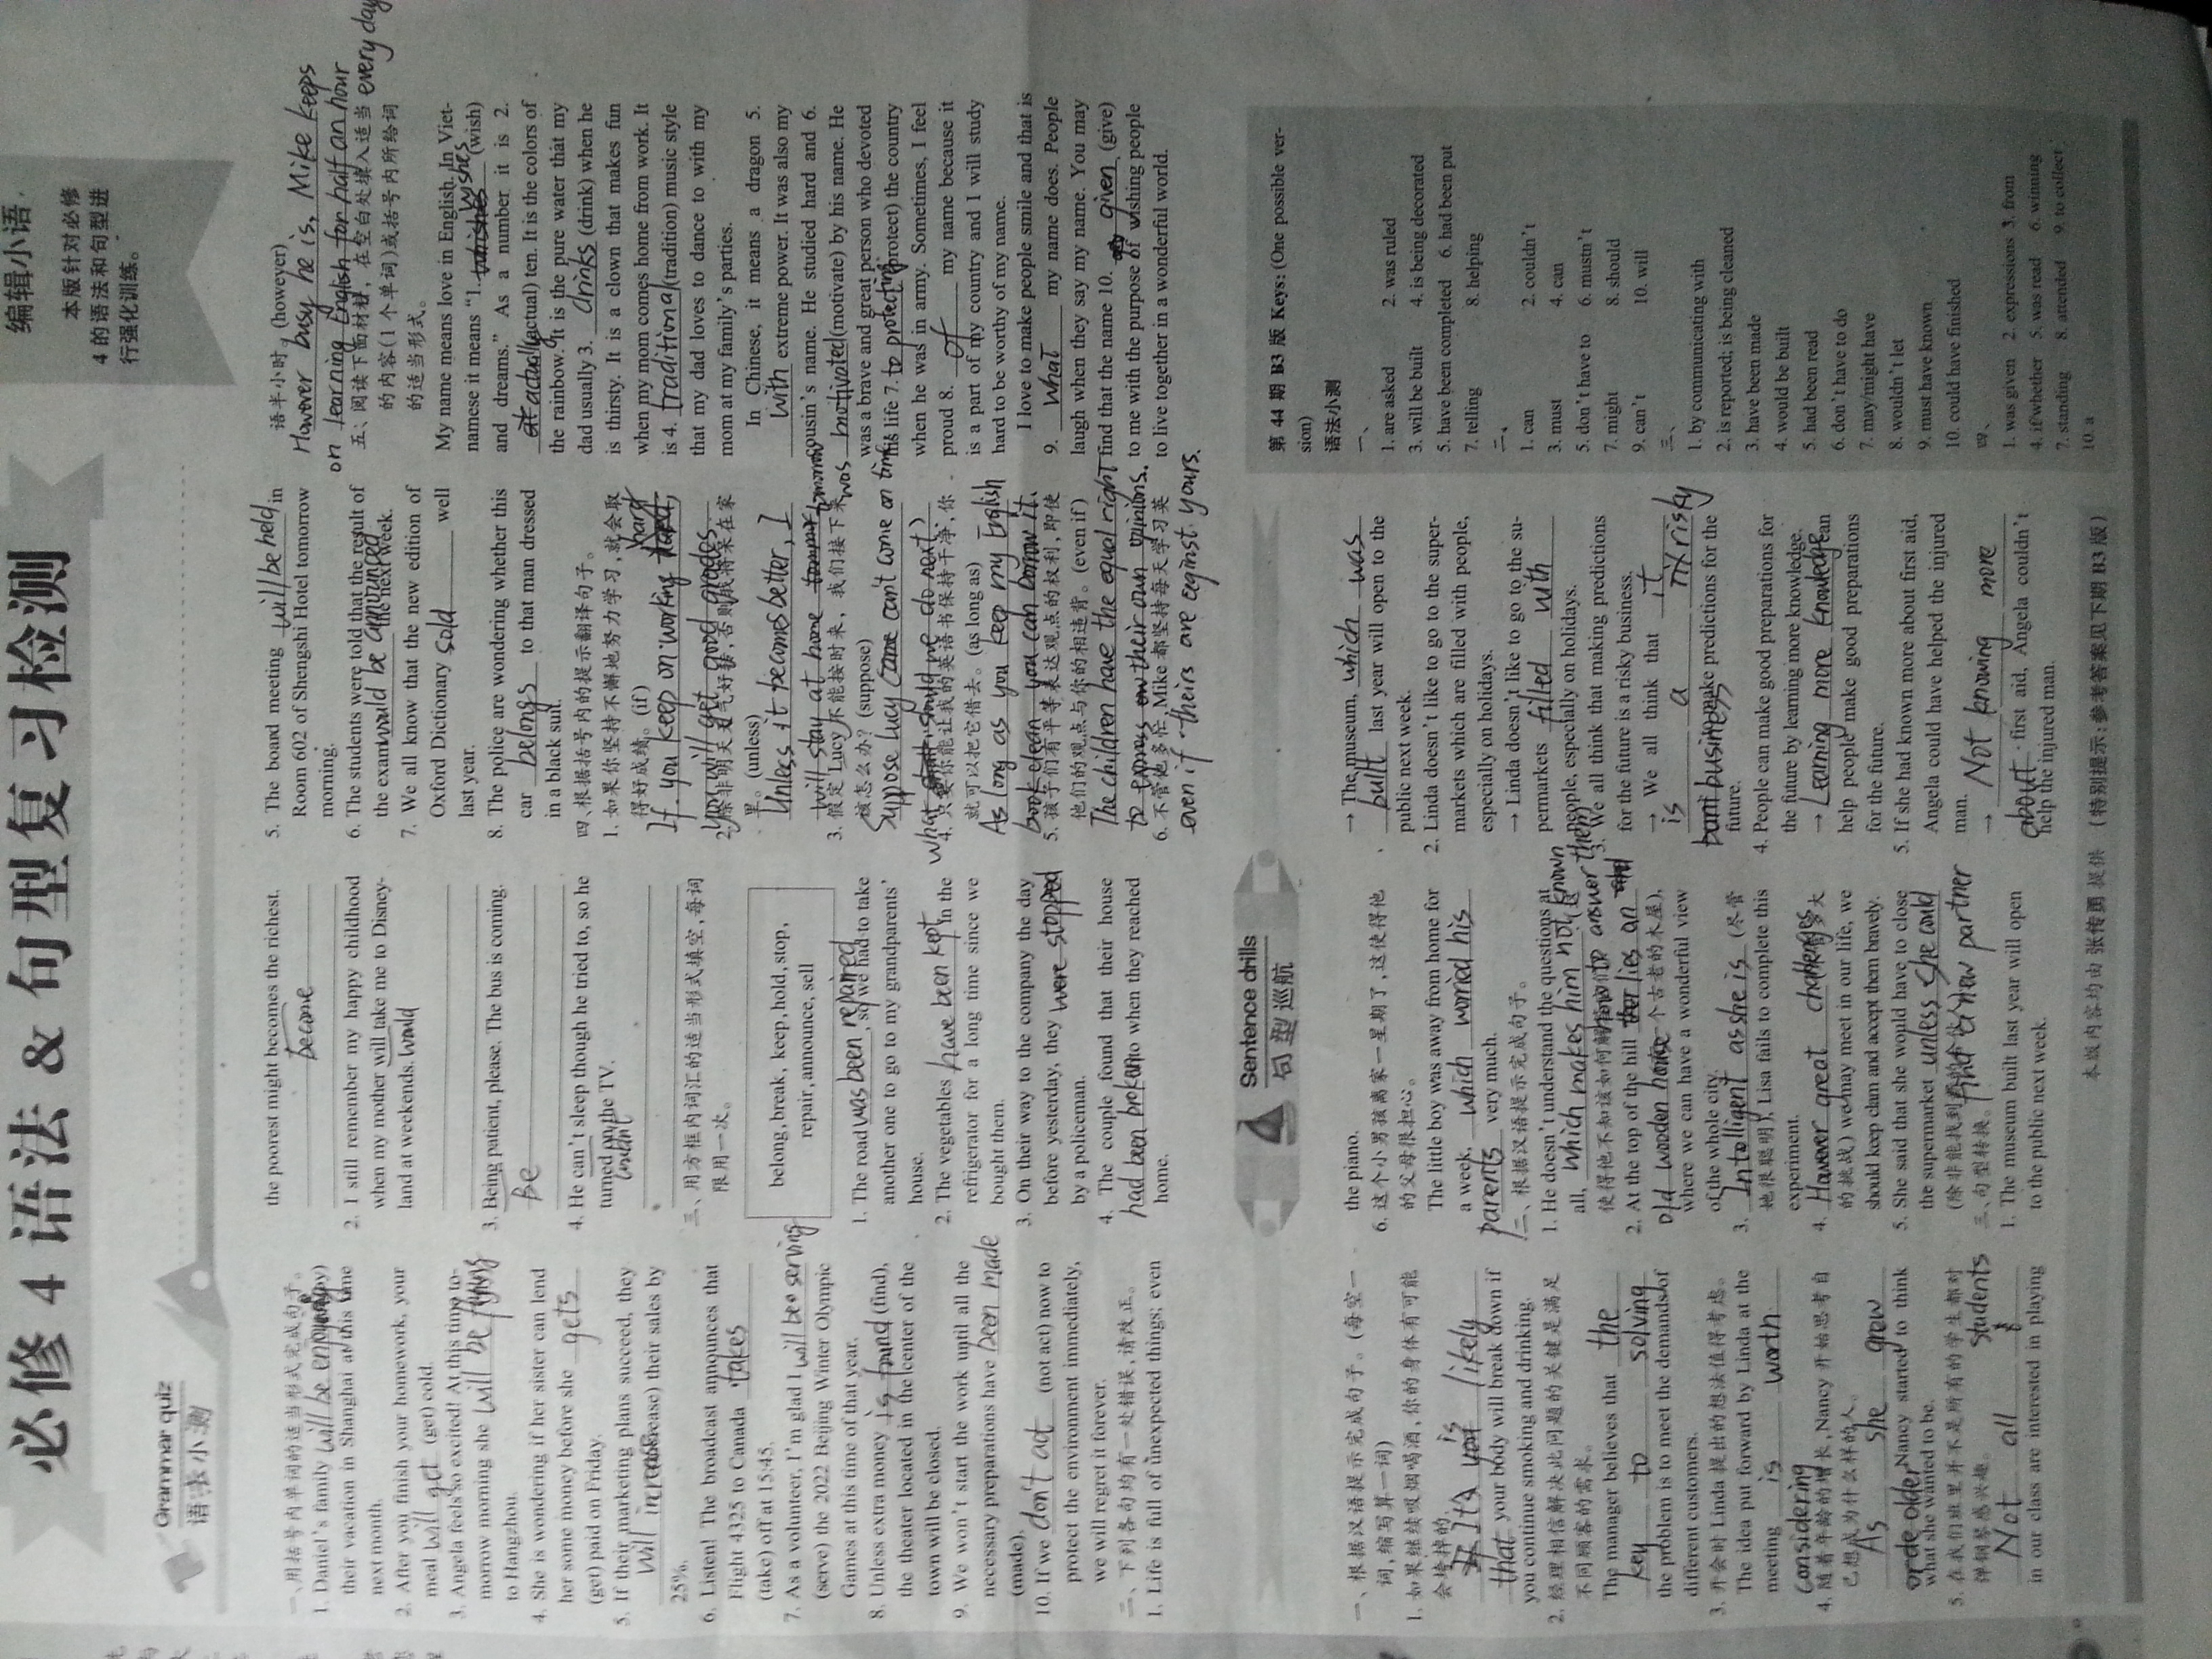 必修 4 语法 & 句型复习检测
编辑小语
本版针对必修
4 的语法和句型进
行强化训练。
Grammar quiz
语法小测
一、用括号内单词的适当形式完成句子。
1. Daniel's family will be enjoying
their vacation in Shanghai at this time
next month.
2. After you finish your homework, your
meal will get (get) cold.
3. Angela feels so excited! At this time to-
morrow morning she will be flying
to Hangzhou.
4. She is wondering if her sister can lend
her some money before she gets
(get) paid on Friday.
5. If their marketing plans succeed, they
will increase (increase) their sales by
25%.
6. Listen! The broadcast announces that
Flight 4325 to Canada takes
(take) off at 15:45.
7. As a volunteer, I'm glad I will be serving
(serve) the 2022 Beijing Winter Olympic
Games at this time of that year.
8. Unless extra money is found (find),
the theater located in the center of the
town will be closed.
9. We won't start the work until all the
necessary preparations have been made
(made).
10. If we don't act (not act) now to
protect the environment immediately,
we will regret it forever.
二、下列各句均有一处错误,请改正。
1. Life is full of unexpected things; even
the poorest might becomes the richest.
become
2. I still remember my happy childhood
when my mother will take me to Disney-
land at weekends. would
3. Being patient, please. The bus is coming.
Be
4. He can't sleep though he tried to, so he
turned on the TV.
couldn't
三、用方框内词汇的适当形式填空,每词
限用一次。
belong, break, keep, hold, stop,
repair, announce, sell
1. The road was been repaired, so we had to take
another one to go to my grandparents'
house.
2. The vegetables have been kept in the
refrigerator for a long time since we
bought them.
3. On their way to the company the day
before yesterday, they were stopped
by a policeman.
4. The couple found that their house
had been broken into when they reached
home.
5. The board meeting will be held in
Room 602 of Shengshi Hotel tomorrow
morning.
6. The students were told that the result of
the exam would be announced the next week.
7. We all know that the new edition of
Oxford Dictionary sold well
last year.
8. The police are wondering whether this
car belongs to that man dressed
in a black suit.
四、根据括号内的提示翻译句子。
1. 如果你坚持不懈地努力学习,就会取
得好成绩。(if)
If you keep on working hard,
you will get good grades.
2. 除非明天天气好转,否则我将呆在家
里。(unless)
Unless it becomes better, I
will stay at home tomorrow
3. 假定 Lucy 不能按时来, 我们接下来
该怎么办? (suppose)
Suppose Lucy can't come on time,
what should we do next?
4. 只要你能让我的英语书保持干净,你
就可以把它借去。(as long as)
As long as you keep my English
book clean you can borrow it.
5. 孩子们有平等表达观点的权利,即使
他们的观点与你的相违背。(even if)
The children have the equal right
to express their own opinions.
even if theirs are aginst yours.
6. 不管他多忙,Mike 都坚持每天学习英
语半小时。(however)
However busy he is, Mike keeps
on learning English for half an hour
every day
五、阅读下面材料, 在空白处填入适当
的内容(1 个单词)或括号内所给词
的适当形式。
My name means love in English. In Viet-
namese it means "1. wishes (wish)
and dreams." As a number it is 2.
actually (actual) ten. It is the colors of
the rainbow. It is the pure water that my
dad usually 3. drinks (drink) when he
is thirsty. It is a clown that makes fun
when my mom comes home from work. It
is 4. traditional (tradition) music style
that my dad loves to dance to with my
mom at my family's parties.
In Chinese, it means a dragon 5.
with extreme power. It was also my
cousin's name. He studied hard and 6.
was motivated (motivate) by his name. He
was a brave and great person who devoted
his life 7. to protecting (protect) the country
when he was in army. Sometimes, I feel
proud 8. of my name because it
is a part of my country and I will study
hard to be worthy of my name.
I love to make people smile and that is
9. what my name does. People
laugh when they say my name. You may
find that the name 10. given (give)
to me with the purpose of wishing people
to live together in a wonderful world.
Sentence drills
句型巡航
一、根据汉语提示完成句子。(每空一
词,缩写算一词)
1. 如果继续吸烟喝酒,你的身体有可能
会垮掉的。
It is likely
that your body will break down if
you continue smoking and drinking.
2. 经理相信解决此问题的关键是满足
不同顾客的需求。
The manager believes that the
key to solving
the problem is to meet the demands of
different customers.
3. 开会时 Linda 提出的想法值得考虑。
The idea put forward by Linda at the
meeting is worth
considering
4. 随着年龄的增长,Nancy 开始思考自
己想成为什么样的人。
As she grew
older Nancy started to think
what she wanted to be.
5. 在我们班里并不是所有的学生都对
弹钢琴感兴趣。
Not all students
in our class are interested in playing
the piano.
6. 这个小男孩离家一星期了,这使得他
的父母很担心。
The little boy was away from home for
a week, which worried his
parents very much.
二、根据汉语提示完成句子。
1. He doesn't understand the questions at
all, which makes him not known
how to answer them
使得他不知该如何解答它们).
2. At the top of the hill lies an
old wooden house 一个古老的木屋),
where we can have a wonderful view
of the whole city.
3. Intelligent as she is (尽管
她很聪明), Lisa fails to complete this
experiment.
4. However great challenges 多大
的挑战) we may meet in our life, we
should keep clam and accept them bravely.
5. She said that she would have to close
the supermarket unless she could
find a new partner
三、句型转换。
1. The museum built last year will open
to the public next week.
→ The museum, which was
built last year will open to the
public next week.
2. Linda doesn't like to go to the super-
markets which are filled with people,
especially on holidays.
→ Linda doesn't like to go to the su-
permarkets filled with
people, especially on holidays.
3. We all think that making predictions
for the future is a risky business.
→ We all think that it
is a risky
business to make predictions for the
future.
4. People can make good preparations for
the future by learning more knowledge.
→ Learning more knowledge can
help people make good preparations
for the future.
5. If she had known more about first aid,
Angela could have helped the injured
man.
→ Not knowing more
about first aid, Angela couldn't
help the injured man.
第 44 期 B3 版 Keys: (One possible ver-
sion)
语法小测
一、
1. are asked 2. was ruled
3. will be built 4. is being decorated
5. have been completed 6. had been put
7. telling 8. helping
二、
1. can 2. couldn't
3. must 4. can
5. don't have to 6. mustn't
7. might 8. should
9. can't 10. will
三、
1. by communicating with
2. is reported; is being cleaned
3. have been made
4. would be built
5. had been read
6. don't have to do
7. may/might have
8. wouldn't let
9. must have known
10. could have finished
四、
1. was given 2. expressions 3. from
4. if/whether 5. was read 6. winning
7. standing 8. attended 9. to collect
10. a
本版内容均由 张传勇 提供 (特别提示:参考答案见下期 B3 版)